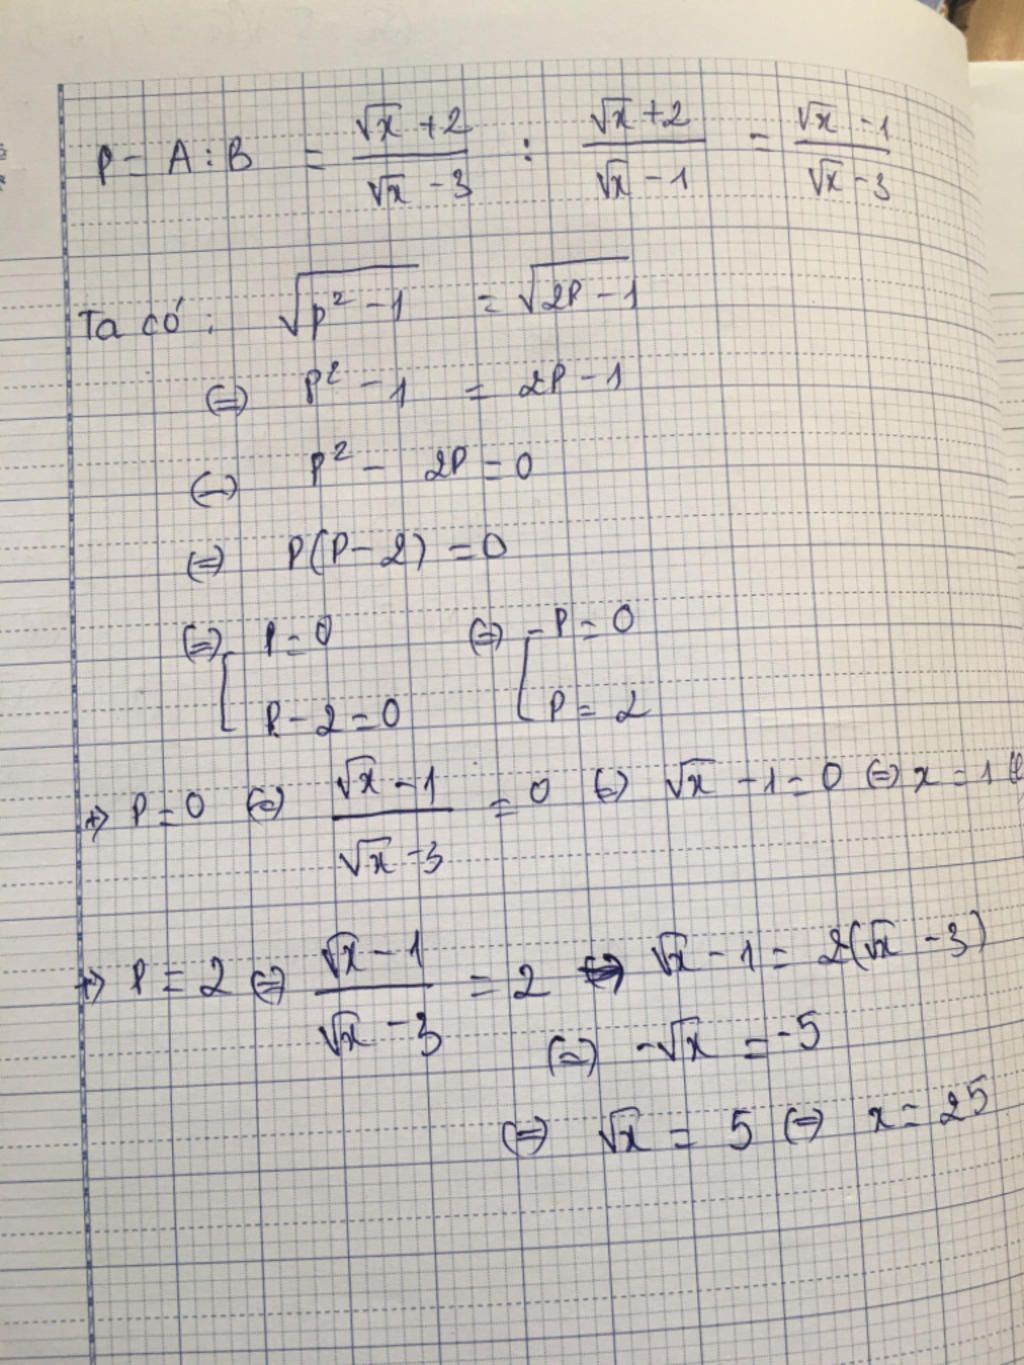 P = A : B = (√x + 2)/(√x - 3) : (√x + 2)/(√x - 1) = (√x - 1)/(√x - 3)
Ta có : √(P² - 1) = √(2P - 1)
(=) P² - 1 = 2P - 1
(=) P² - 2P = 0
(=) P(P - 2) = 0
(=) [ P = 0 (=) [ P = 0
P - 2 = 0 P = 2
+) P = 0 (=) (√x - 1)/(√x - 3) = 0 (=) √x - 1 = 0 (=) x = 1
+) P = 2 (=) (√x - 1)/(√x - 3) = 2 (=) √x - 1 = 2(√x - 3)
(=) -√x = -5
(=) √x = 5 (=) x = 25